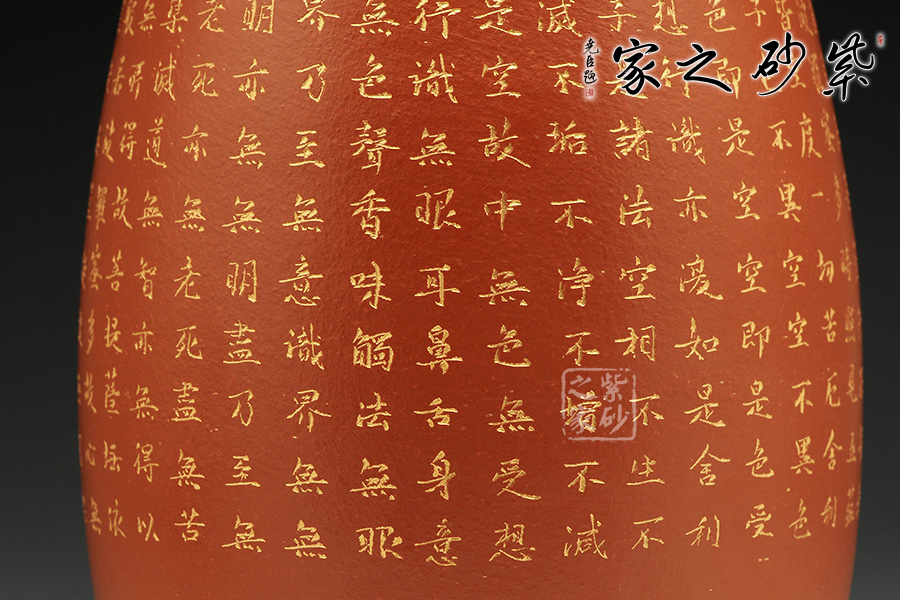 紫砂之家
堯臣題
多時照見五
皆空度一切苦厄舍利
子不異空空不異色
色即是空空即是色受
想行識亦復如是舍利
子是諸法空相不生不
滅不垢不淨不增不減
是空故中無色無受想
行識無眼耳鼻舌身意
無色聲香味觸法無眼
界乃至無意識界無無
明亦無無明盡乃至無
老死亦無老死盡無苦
集滅道無智亦無得以
無所得故菩提薩埵依
若波羅蜜多故心無
紫砂之家